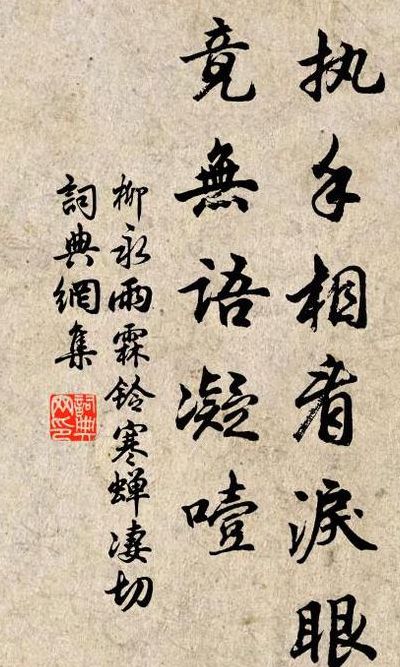 执手相看淚眼
竟無語凝噎
柳永雨霖鈴寒蝉凄切
詞典網集
詞典网印